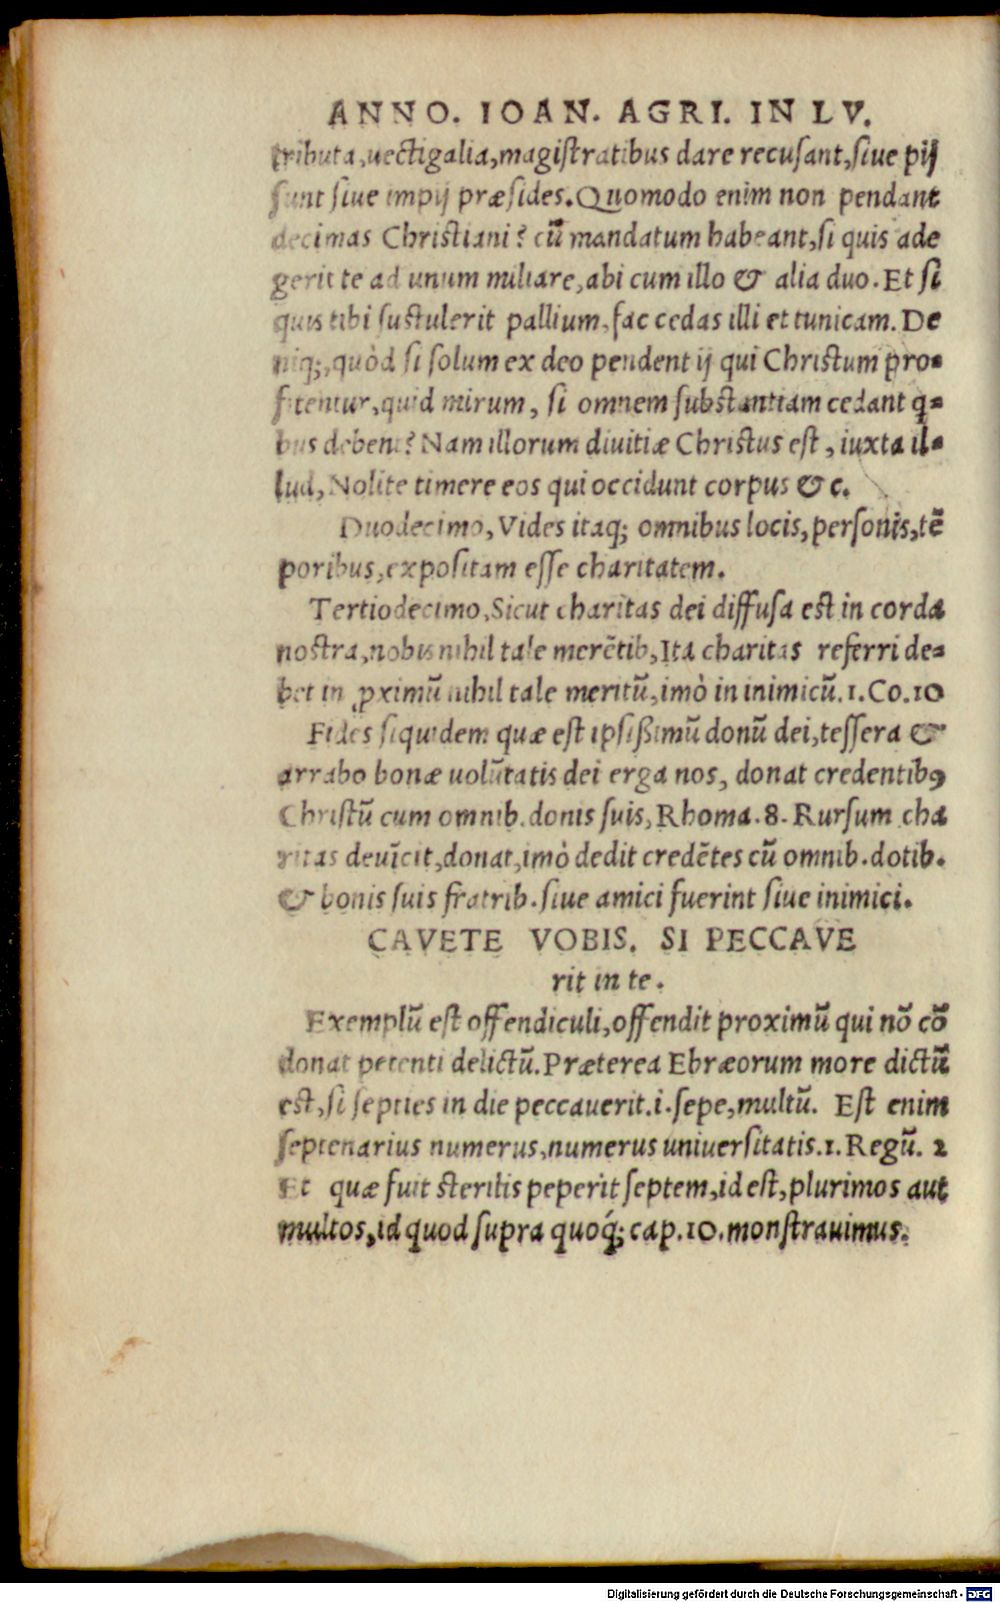 ANNO. IOAN. AGRI. IN LV.
tributa,uectigalia,magistratibus dare recusant,siue pij
sunt siue impij præsides.Quomodo enim non pendant
decimas Christiani? cū mandatum habeant,si quis ade
gerit te ad unum miliare,abi cum illo & alia duo.Et si
quis tibi sustulerit pallium,fac cedas illi et tunicam.De
niq;,quòd si solum ex deo pendent ij qui Christum pro=
fitentur,quid mirum, si omnem substantiam cedant q=
bus debent? Nam illorum diuitiæ Christus est, iuxta il=
lud,Nolite timere eos qui occidunt corpus & c.
Duodecimo,Vides itaq; omnibus locis,personis,tē
poribus,expositam esse charitatem.
Tertiodecimo,Sicut charitas dei diffusa est in corda
nostra,nobis nihil tale merētib,Ita charitas referri de=
bet in ꝓximū nihil tale meritū,imò in inimicū.1.Co.10
Fides siquidem quæ est ipsißimū donū dei,tessera &
arrabo bonæ uolūtatis dei erga nos, donat credentibꝰ
Christū cum omnib.donis suis,Rhoma.8. Rursum cha
ritas deuīcit,donat,imò dedit credētes cū omnib.dotib.
& bonis suis fratrib.siue amici fuerint siue inimici.
CAVETE VOBIS. SI PECCAVE
rit in te.
Exemplū est offendiculi,offendit proximū qui nō cō
donat petenti delictū.Præterea Ebræorum more dictū
est,si septies in die peccauerit.i.sepe,multū. Est enim
septenarius numerus,numerus uniuersitatis.1.Regū. 2
Et quæ fuit sterilis peperit septem,id est,plurimos aut
multos,id quod supra quoq́; cap.10.monstrauimus.
Digitalisierung gefördert durch die Deutsche Forschungsgemeinschaft - DFG